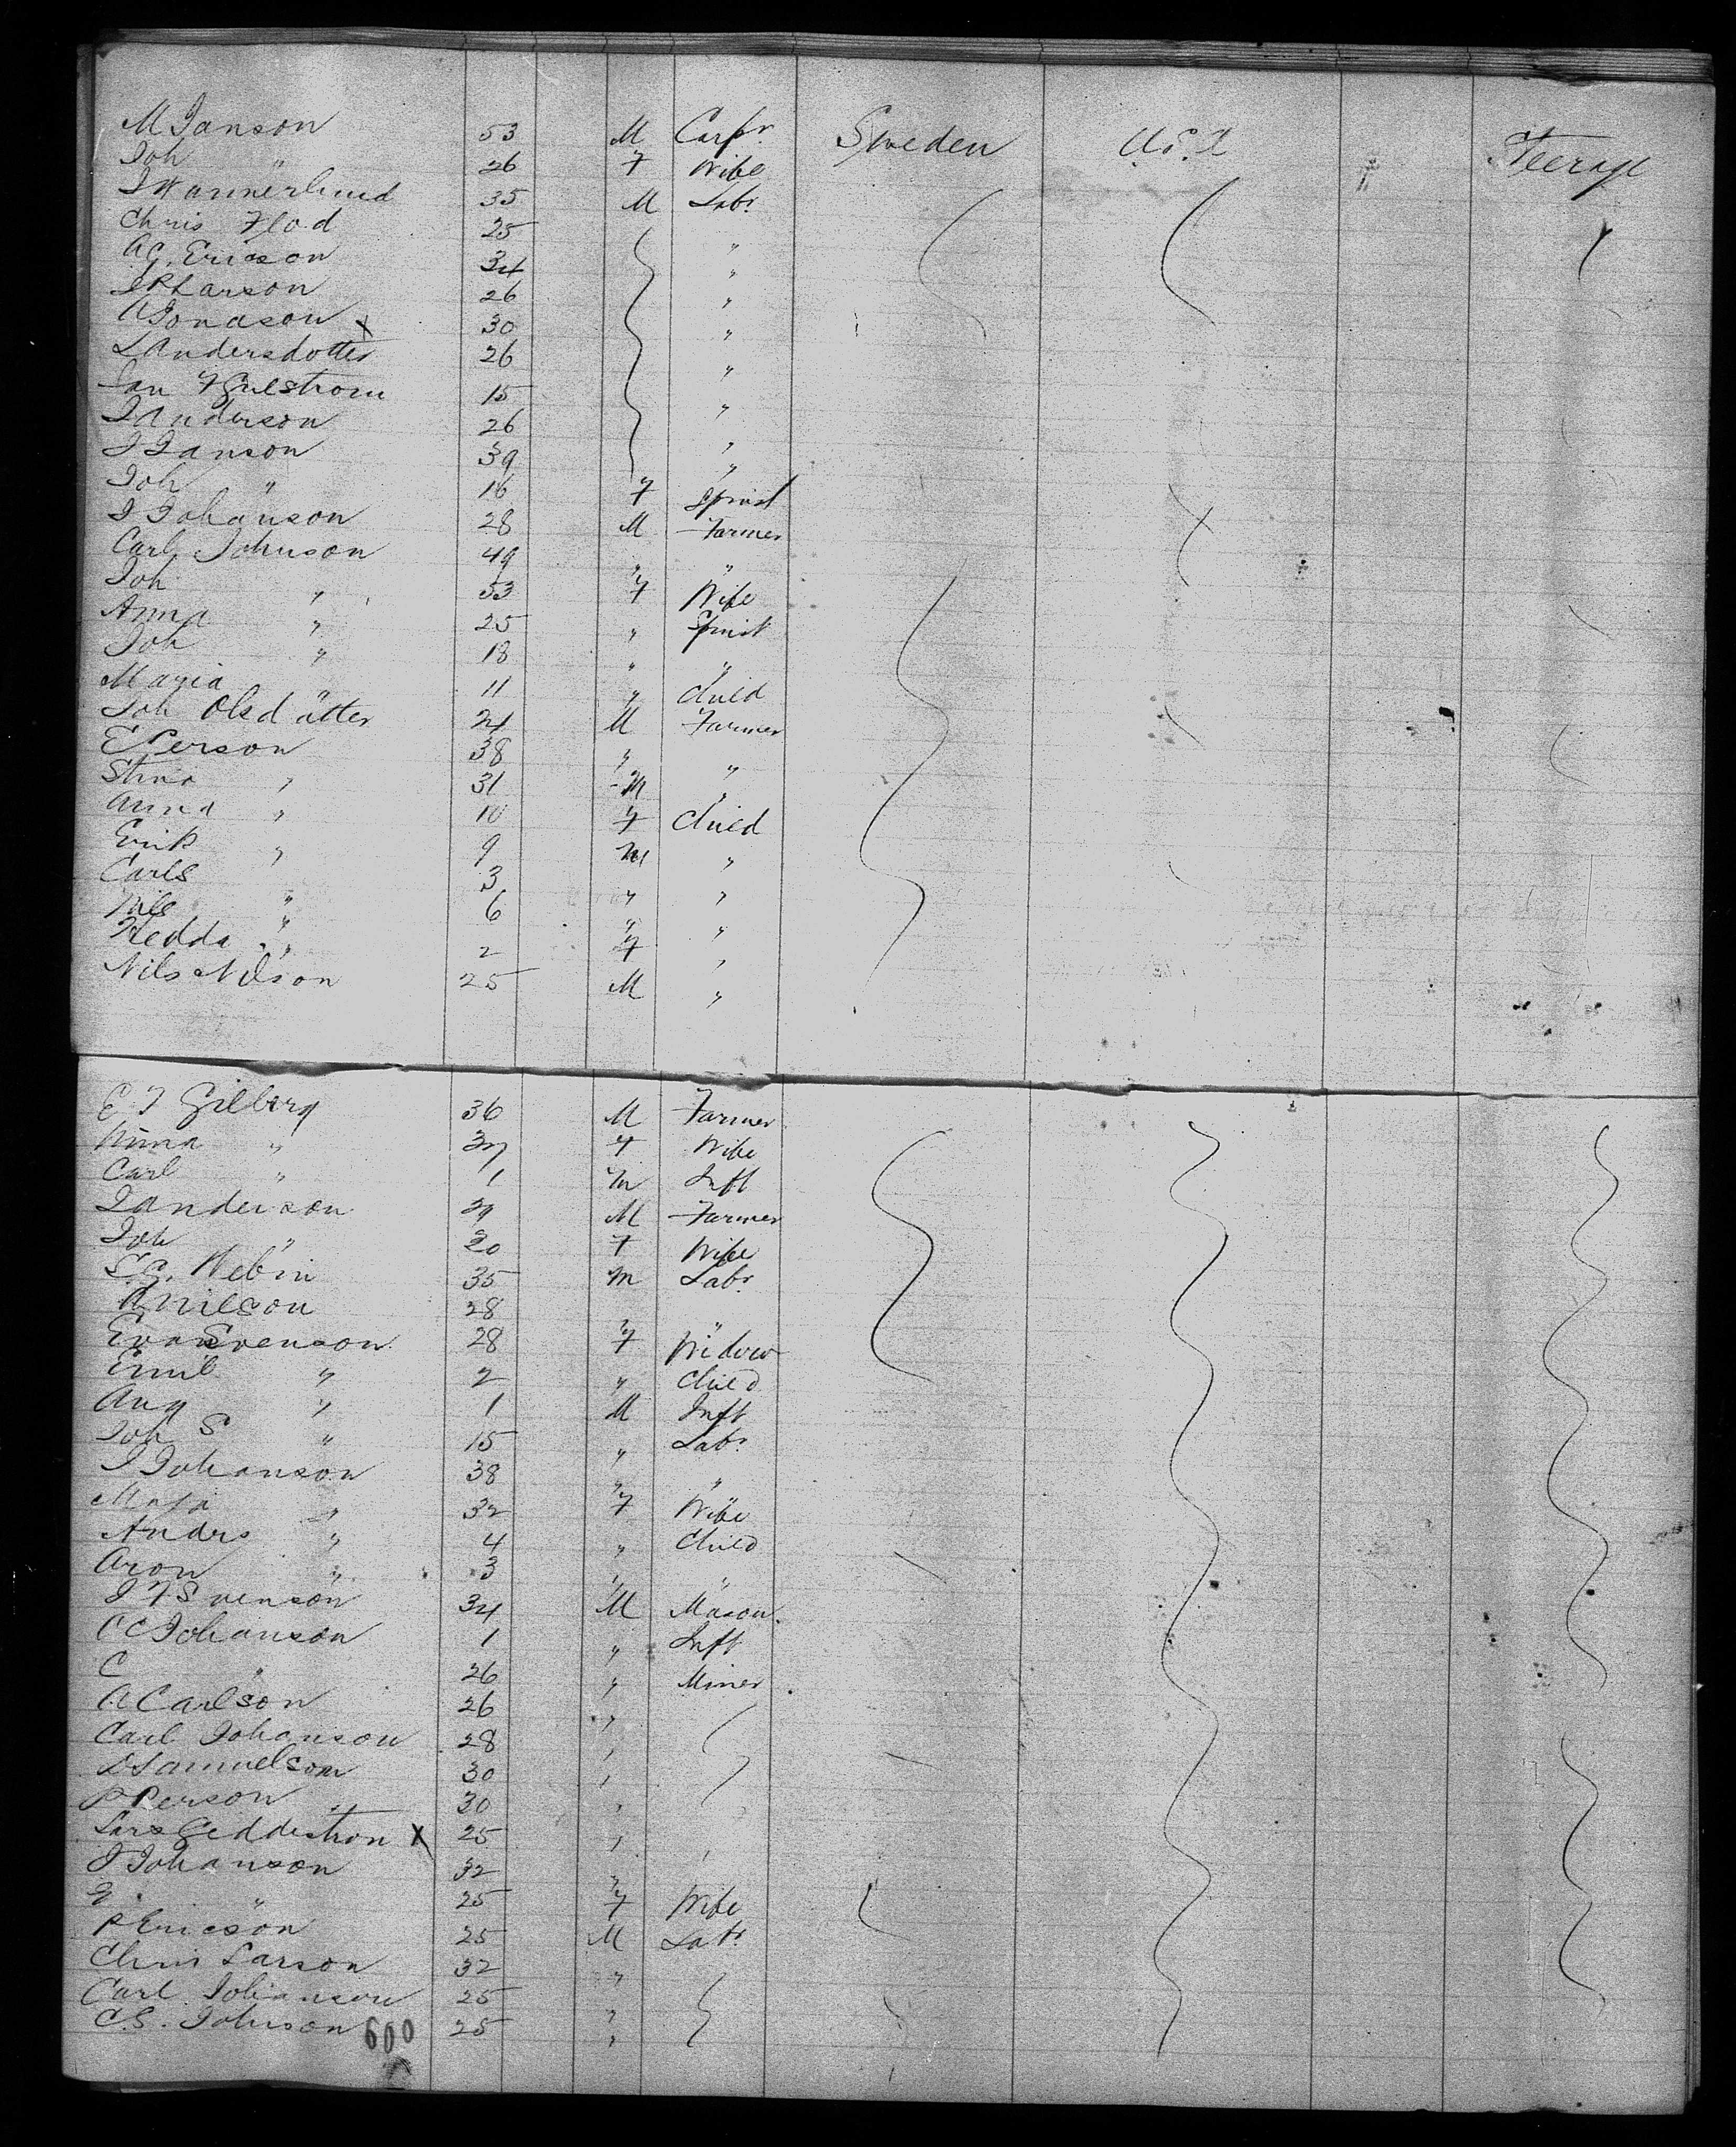 M Janson 53 M Carpr. Sweden U.S.A Steerage
Joh " 26 F Wife
J Wannerlund 35 M Labr.
Chris Flod 25 "
A G. Ericson 34 "
J P Larson 26 "
A Jonason x 30 "
L Andersdotter 26 "
15 "
J Anderson 26 "
J Janson 39 "
Joh " 16 F Spinst
J Johanson 28 M Farmer
Carl Johnson 49 " "
Joh " 53 F Wife
Anna " 25 " Spinst
Joh " 18 " "
Maria 11 " Child
Joh Olsdotter 24 M Farmer
E Person 38 " "
Stina " 31 M "
Anna " 10 F Child
Erik " 9 M "
Carls " 3 " "
Nils " 6 " "
Hedda " 2 F "
Nils Nilson 25 M "
E. J Gilberg 36 M Farmer
Anna " 37 F Wife
Carl " 1 M Inft
J Anderson 29 M Farmer
Joh " 20 F Wife
35 M Labr.
A Nilson 28 " "
Eva Svenson 28 F Widow
Emil " 2 " Child
Aug " 1 M Inft
Joh S " 15 " Labr.
J Johanson 38 " "
Maja " 32 F Wife
Anders " 4 " Child
Aron " 3 " "
J F Svenson 34 M Mason.
C C Johanson 1 " Inft
C " 26 " Miner
A Carlson 26 "
Carl Johanson 28 "
D Samuelson 30 "
P Person 30 "
Lars Geddestron X 25 "
J Johanson 32 "
" 25 F Wife
P Ericson 25 M Labr
Chris Larson 32 "
Carl Johanson 25 "
C. S. Johnson 25 "
600